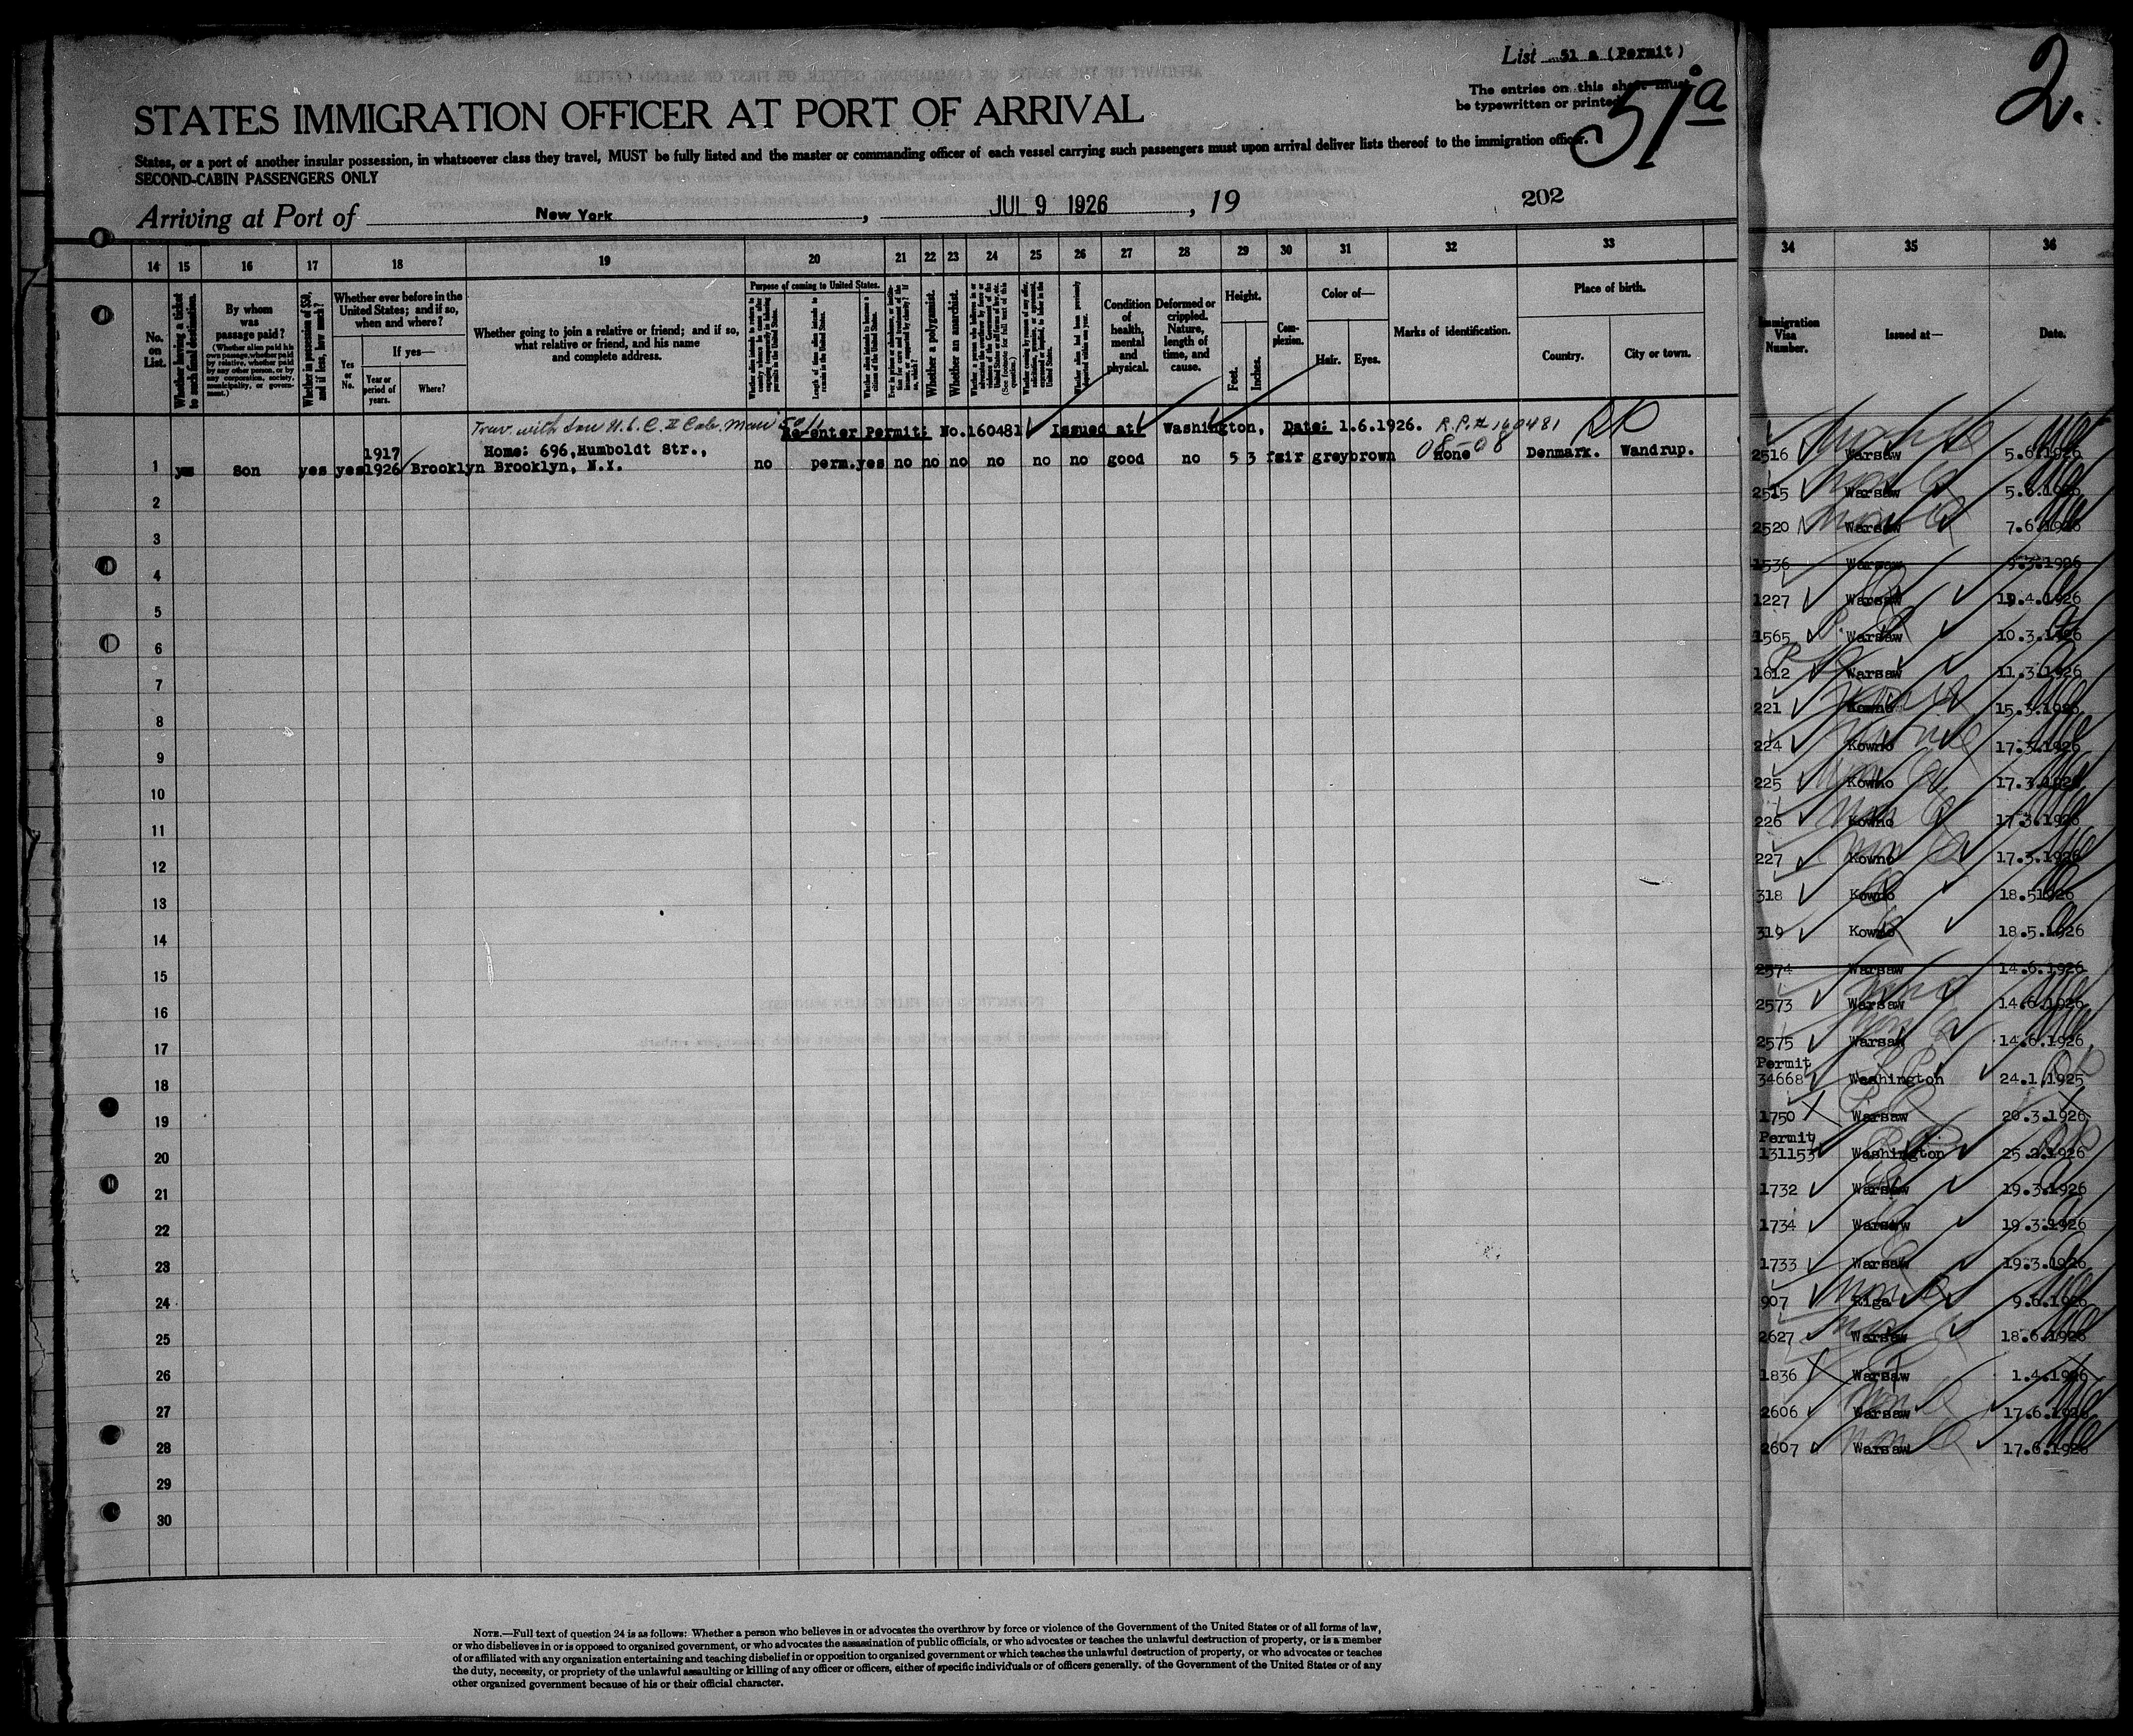 List 51 a (Permit)
The entries on this sheet must
be typewritten or printed.
51a
2.
STATES IMMIGRATION OFFICER AT PORT OF ARRIVAL
States, or a port of another insular possession, in whatsoever class they travel, MUST be fully listed and the master or commanding officer of each vessel carrying such passengers must upon arrival deliver lists thereof to the immigration officer.
SECOND-CABIN PASSENGERS ONLY
Arriving at Port of New York, JUL 9 1926, 19
202
14 15 16 17 18 19 20 21 22 23 24 25 26 27 28 29 30 31 32 33
No. on List.
Whether having a ticket to such final destination.
By whom was passage paid?
(Whether alien paid his own passage, whether paid by relative, whether paid by any other person, or by any corporation, society, municipality, or government.)
Whether in possession of $50, and if less, how much?
Whether ever before in the United States; and if so, when and where?
Yes or No.
If yes—
Year or period of years.
Where?
Whether going to join a relative or friend; and if so, what relative or friend, and his name and complete address.
Purpose of coming to United States.
Whether a polygamist.
Whether an anarchist.
Condition of health, mental and physical.
Deformed or crippled. Nature, length of time, and cause.
Height.
Feet.
Inches.
Complexion.
Color of—
Hair.
Eyes.
Marks of identification.
Place of birth.
Country.
City or town.
Trav. with son
Re-enter Permit: No.160481 Issued at: Washington, Date: 1.6.1926. R.P.# 160481
1917
Home: 696,Humboldt Str.,
1 yes son yes yes 1926 Brooklyn Brooklyn, N.Y. no perm. yes no no no no no no good no 5 3 fair grey brown none Denmark. Wandrup.
2
3
4
5
6
7
8
9
10
11
12
13
14
15
16
17
18
19
20
21
22
23
24
25
26
27
28
29
30
34 35 36
Immigration Visa Number.
Issued at—
Date.
2516 Warsaw 5.6.1926
2515 Warsaw 5.6.1926
2520 Warsaw 7.6.1926
1536 Warsaw 9.3.1926
1227 Warsaw 19.4.1926
1565 Warsaw 10.3.1926
1612 Warsaw 11.3.1926
221 Kowno 15.3.1926
224 Kowno 17.3.1926
225 Kowno 17.3.1926
226 Kowno 17.3.1926
227 Kowno 17.3.1926
318 Kowno 18.51926
319 Kowno 18.5.1926
2574 Warsaw 14.6.1926
2573 Warsaw 14.6.1926
2575 Warsaw 14.6.1926
Permit
34668 Washington 24.1.1925
1750 Warsaw 20.3.1926
Permit
131153 Washington 25.2.1926
1732 Warsaw 19.3.1926
1734 Warsaw 19.3.1926
1733 Warsaw 19.3.1926
907 Riga 9.6.1926
2627 Warsaw 18.6.1926
1836 Warsaw 1.4.1926
2606 Warsaw 17.6.1926
2607 Warsaw 17.6.1926
NOTE.—Full text of question 24 is as follows: Whether a person who believes in or advocates the overthrow by force or violence of the Government of the United States or of all forms of law,
or who disbelieves in or is opposed to organized government, or who advocates the assassination of public officials, or who advocates or teaches the unlawful destruction of property, or is a member
of or affiliated with any organization entertaining and teaching disbelief in or opposition to organized government or which teaches the unlawful destruction of property, or who advocates or teaches
the duty, necessity, or propriety of the unlawful assaulting or killing of any officer or officers, either of specific individuals or of officers generally. of the Government of the United States or of any
other organized government because of his or their official character.